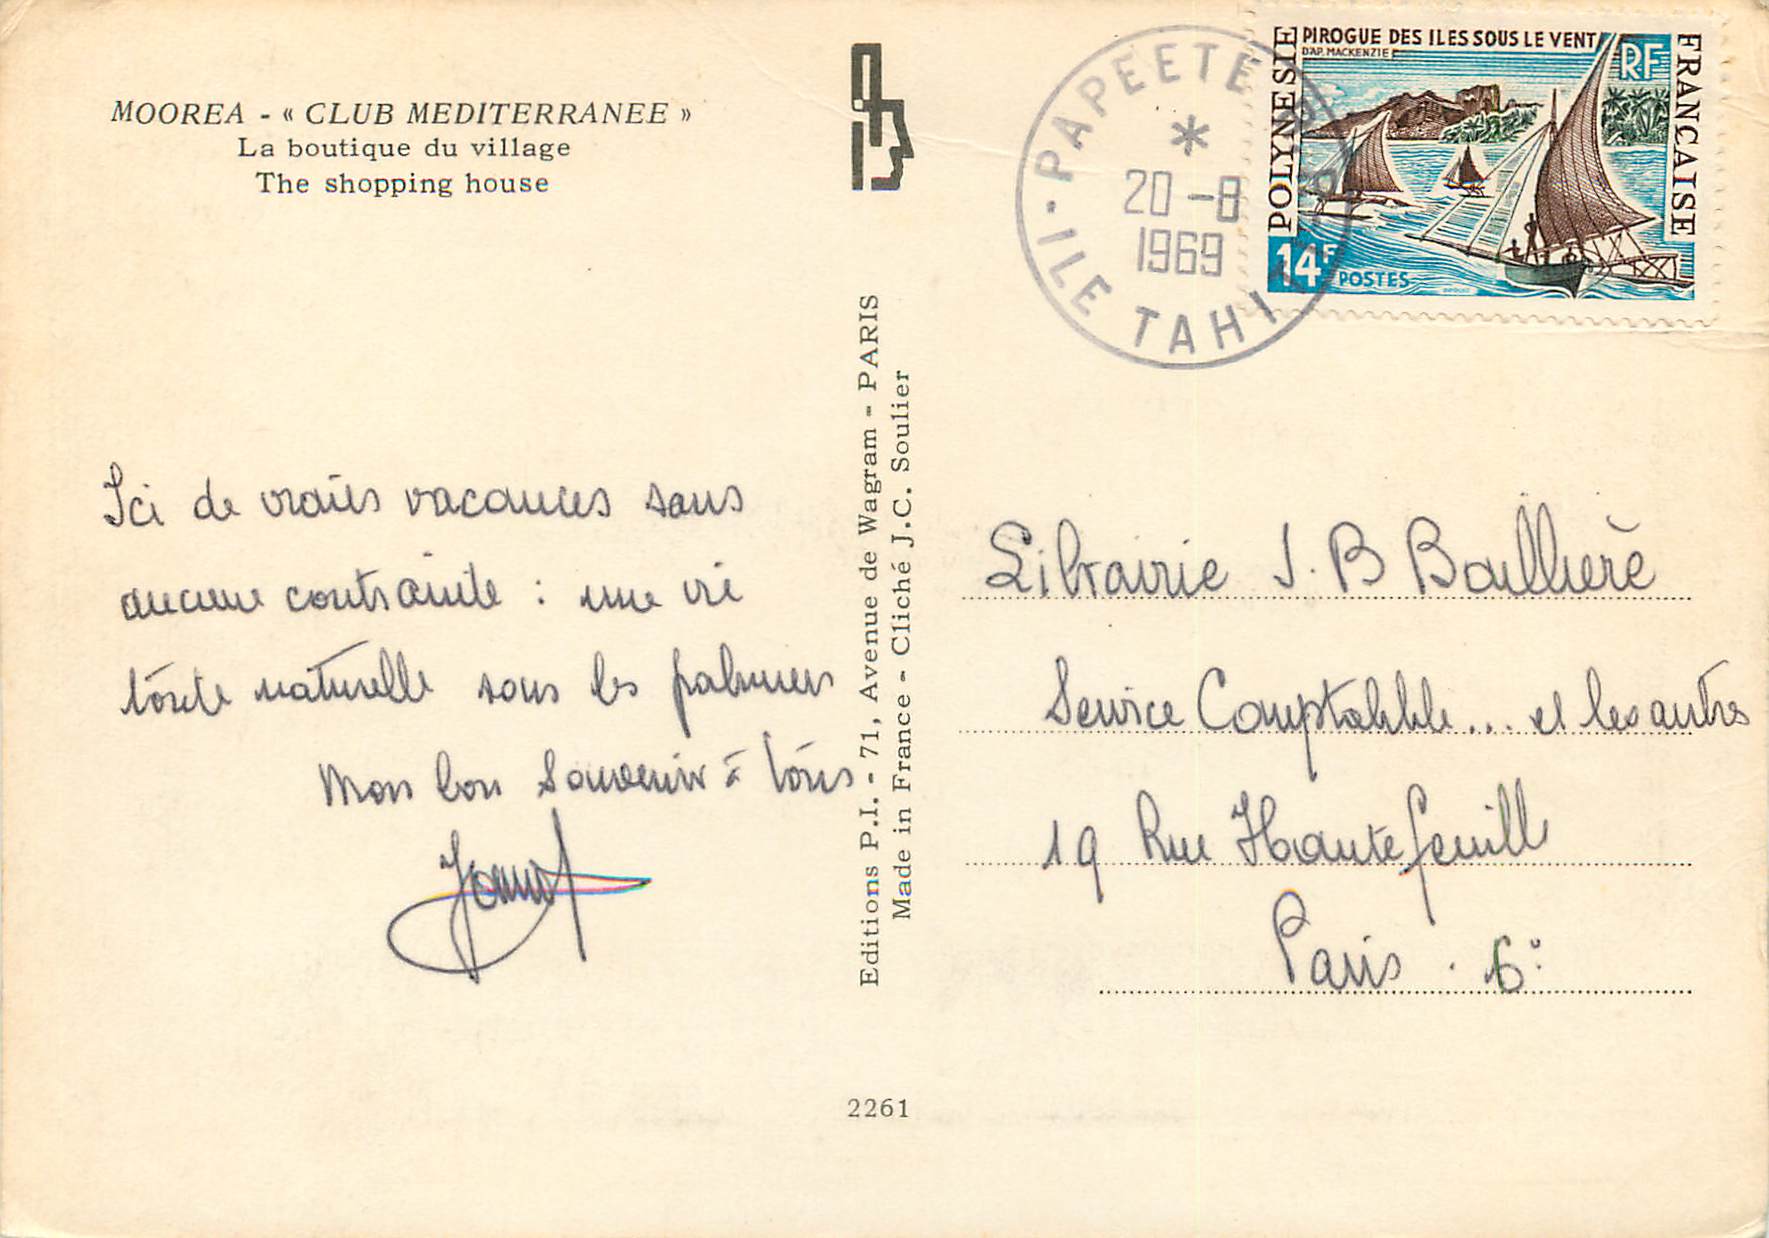 MOOREA - « CLUB MEDITERRANEE »
La boutique du village
The shopping house
Ici de vraies vacances sans
aucune contrainte : une vie
toute naturelle sous les palmiers
Mon bon souvenir à tous
Editions P.I. - 71, Avenue de Wagram - PARIS
Made in France - Cliché J.C. Soulier
2261
PAPEETE
*
20 -8
1969
ILE TAHITI
PIROGUE DES ILES SOUS LE VENT
D'AP. MACKENZIE
RF
POLYNESIE
FRANCAISE
14F
POSTES
Librairie J. B Baillière
Service Comptabble... et les autres
19 Rue Hautefeuille
Paris . 6e